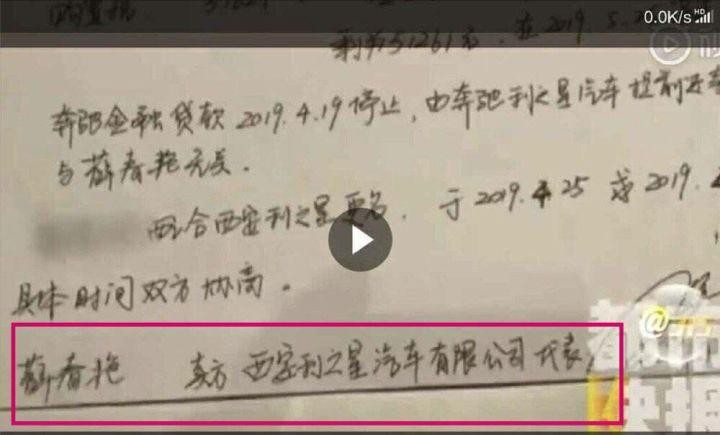 0.0K/s HD
剩余51261元. 在2019.5.
奔驰金融贷款 2019.4.19停止，由奔驰利之星汽车提前还
与薛春艳无关.
配合西安利之星更名. 于2019.4.25或2019.
具体时间双方协商。
薛春艳 卖方 西安利之星汽车有限公司代表
@都市快报